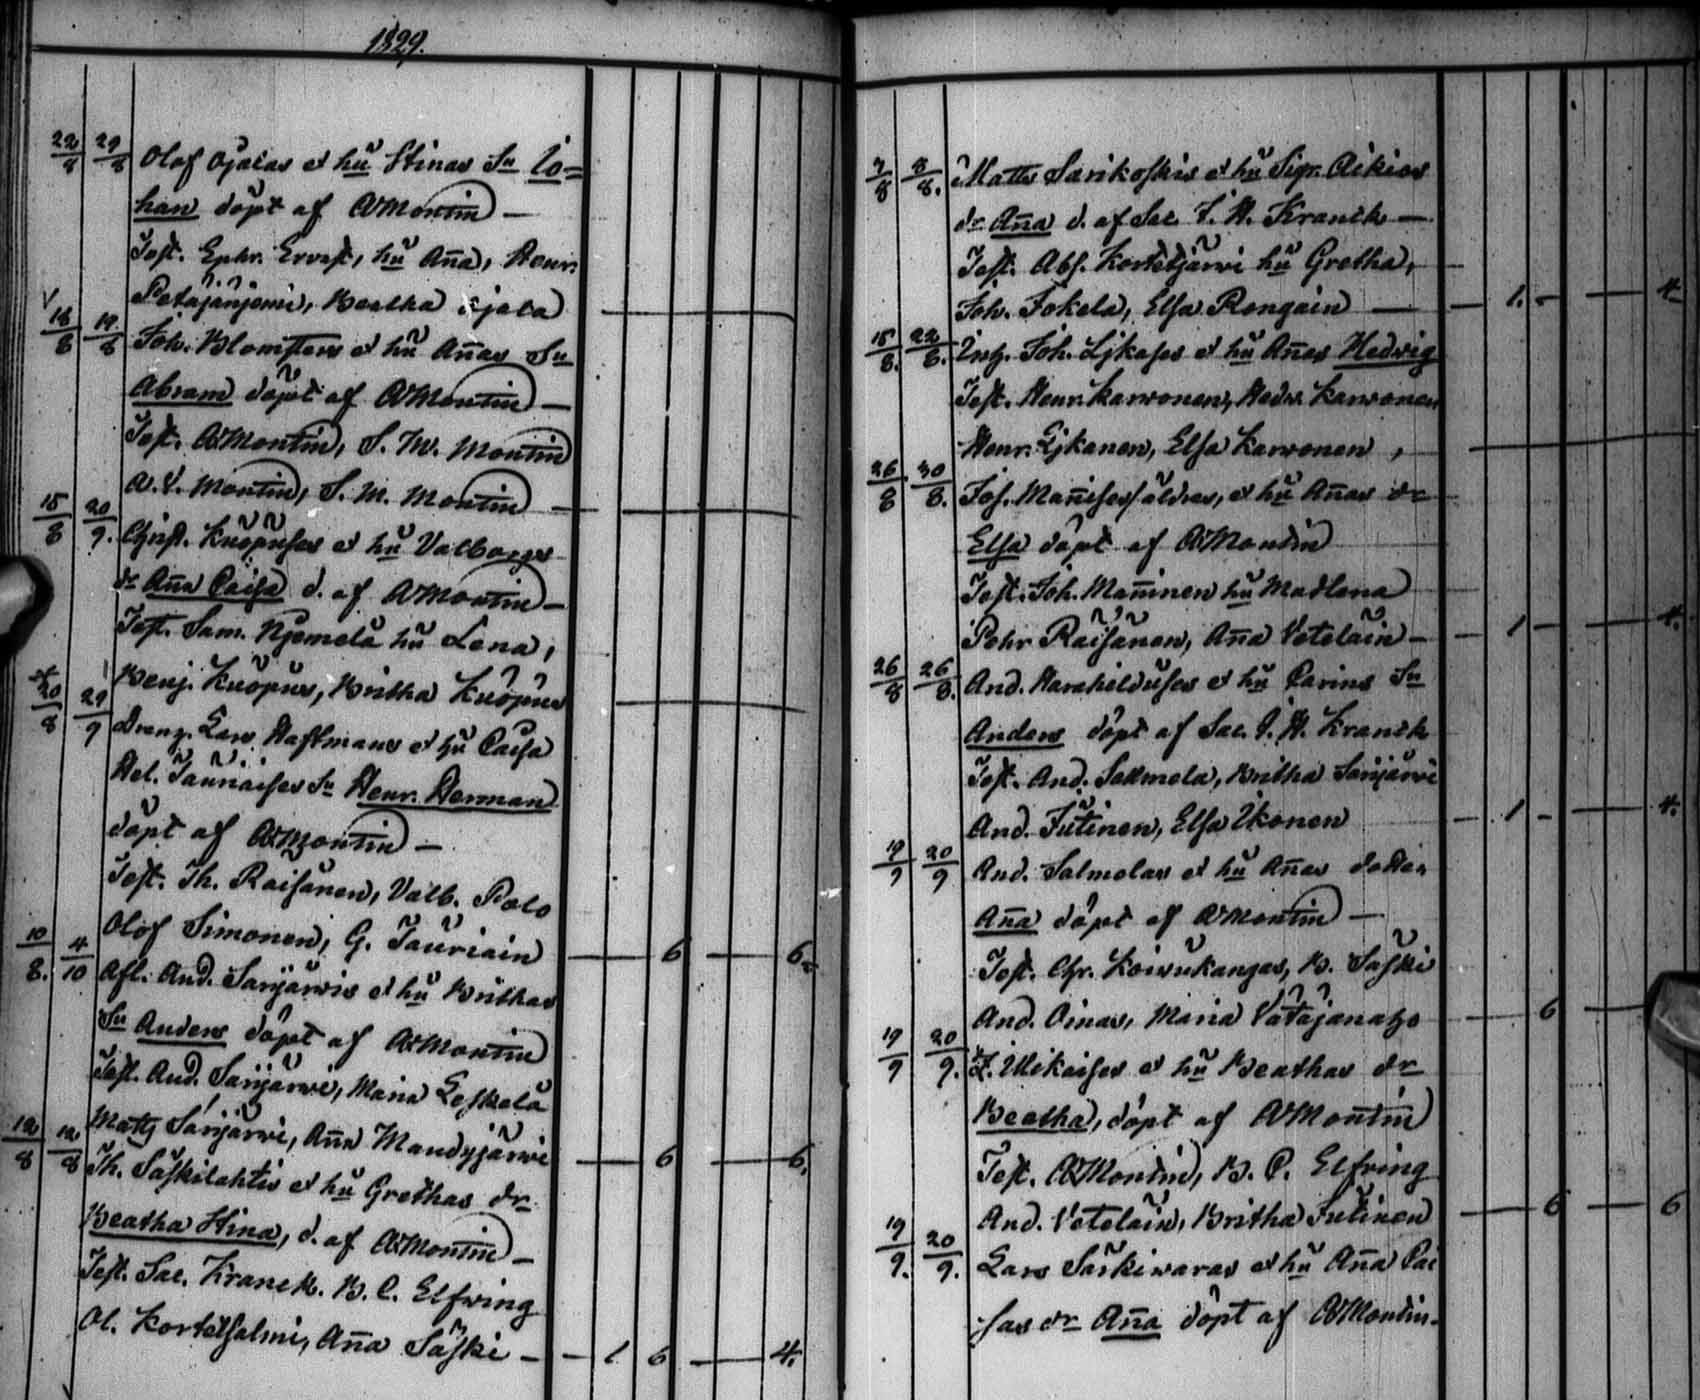 1829.
22/8 29/8 Olof Ojalas et hu Stinas Sn Jo=
han döpt af AMontin —
Test. Ephr. Ervast, hu Aña, Henr.
Petäjäniemi, Beatha Ojala
16/8 19/8 Joh. Blomsters et hu Añas Sn
Abram döpt af AMontin —
Test. AMontin, S. M. Montin
A. V. Montin, S. M. Montin —
15/8 20/9. Christ. Knöpuses et hu Valborgs
dr Aña Caisa d. af AMontin —
Test. Sam. Njemelä hu Lena,
Benj. Kuöpus, Britha Kuöpus
20/8 29/9 Dreng. Lars Hastmans et hu Caisa
Hel. Jauriaises Sn Henr. Herman
döpt af AMontin —
Test. Th. Raisänen, Valb. Polo
Olof Simonen, G. Jauriain — 6 — 6.
10/8. 4/10 Afl. And. Sarijärvis et hu Brithas
Sn Anders döpt af AMontin
Test. And. Sarijärvi, Maria Leskelä
Matts Sarijärvi, Aña Mandyjärvi — 6 — 6.
12/8 12/8 Th. Säskilahtis et hu Grethas dr
Beatha Stina, d. af AMontin —
Test. Sac. Kranck. B. C. Elfving
Ol. Kortetsalmi, Aña Säski — 1 6 — 4.
7/8 8/8. Matts Särikoskis et hu Sigr. Aikios
dr Aña d. af Sac J. H. Kranck —
Test. Abs. Kortetjärvi hu Gretha,
Joh. Jokela, Elsa Rongain — 1. — 4
15/8. 22/8. Inh. Joh. Lykases et hu Añas Hedvig
Test. Henr. Karvonen, Hedv. Karvonen
Henr. Lykanen, Elsa Karvonen,
26/8 30/8. Joh. Mañises äldres, et hu Añas dr
Elsa döpt af AMontin
Test. Joh. Mañinen hu Madlena
Pehr Raisänen, Aña Vetelain — 1 — 4.
26/8 26/8. And. Harahilduses et hu Carins Sn
Anders döpt af Sac. J. H. Kranck
Test. And. Salmela, Britha Sarijärvi
And. Jutinen, Elsa Ikonen — 1 — 4.
19/9 20/9 And. Salmelas et hu Añas dotter
Aña döpt af AMontin —
Test. Chr. Koivukangas, B. Säski
And. Oinas, Maria Vätäjänaho — 6 —
19/9 20/9. Z. Mikaises et hu Beathas dr
Beatha, döpt af AMontin
Test. AMontin, B. C. Elfving
And. Vetelain, Britha Jutinen — 6 — 6
19/9. 20/9. Lars Särkivaras et hu Aña Cai
sas dr Aña döpt af AMontin.